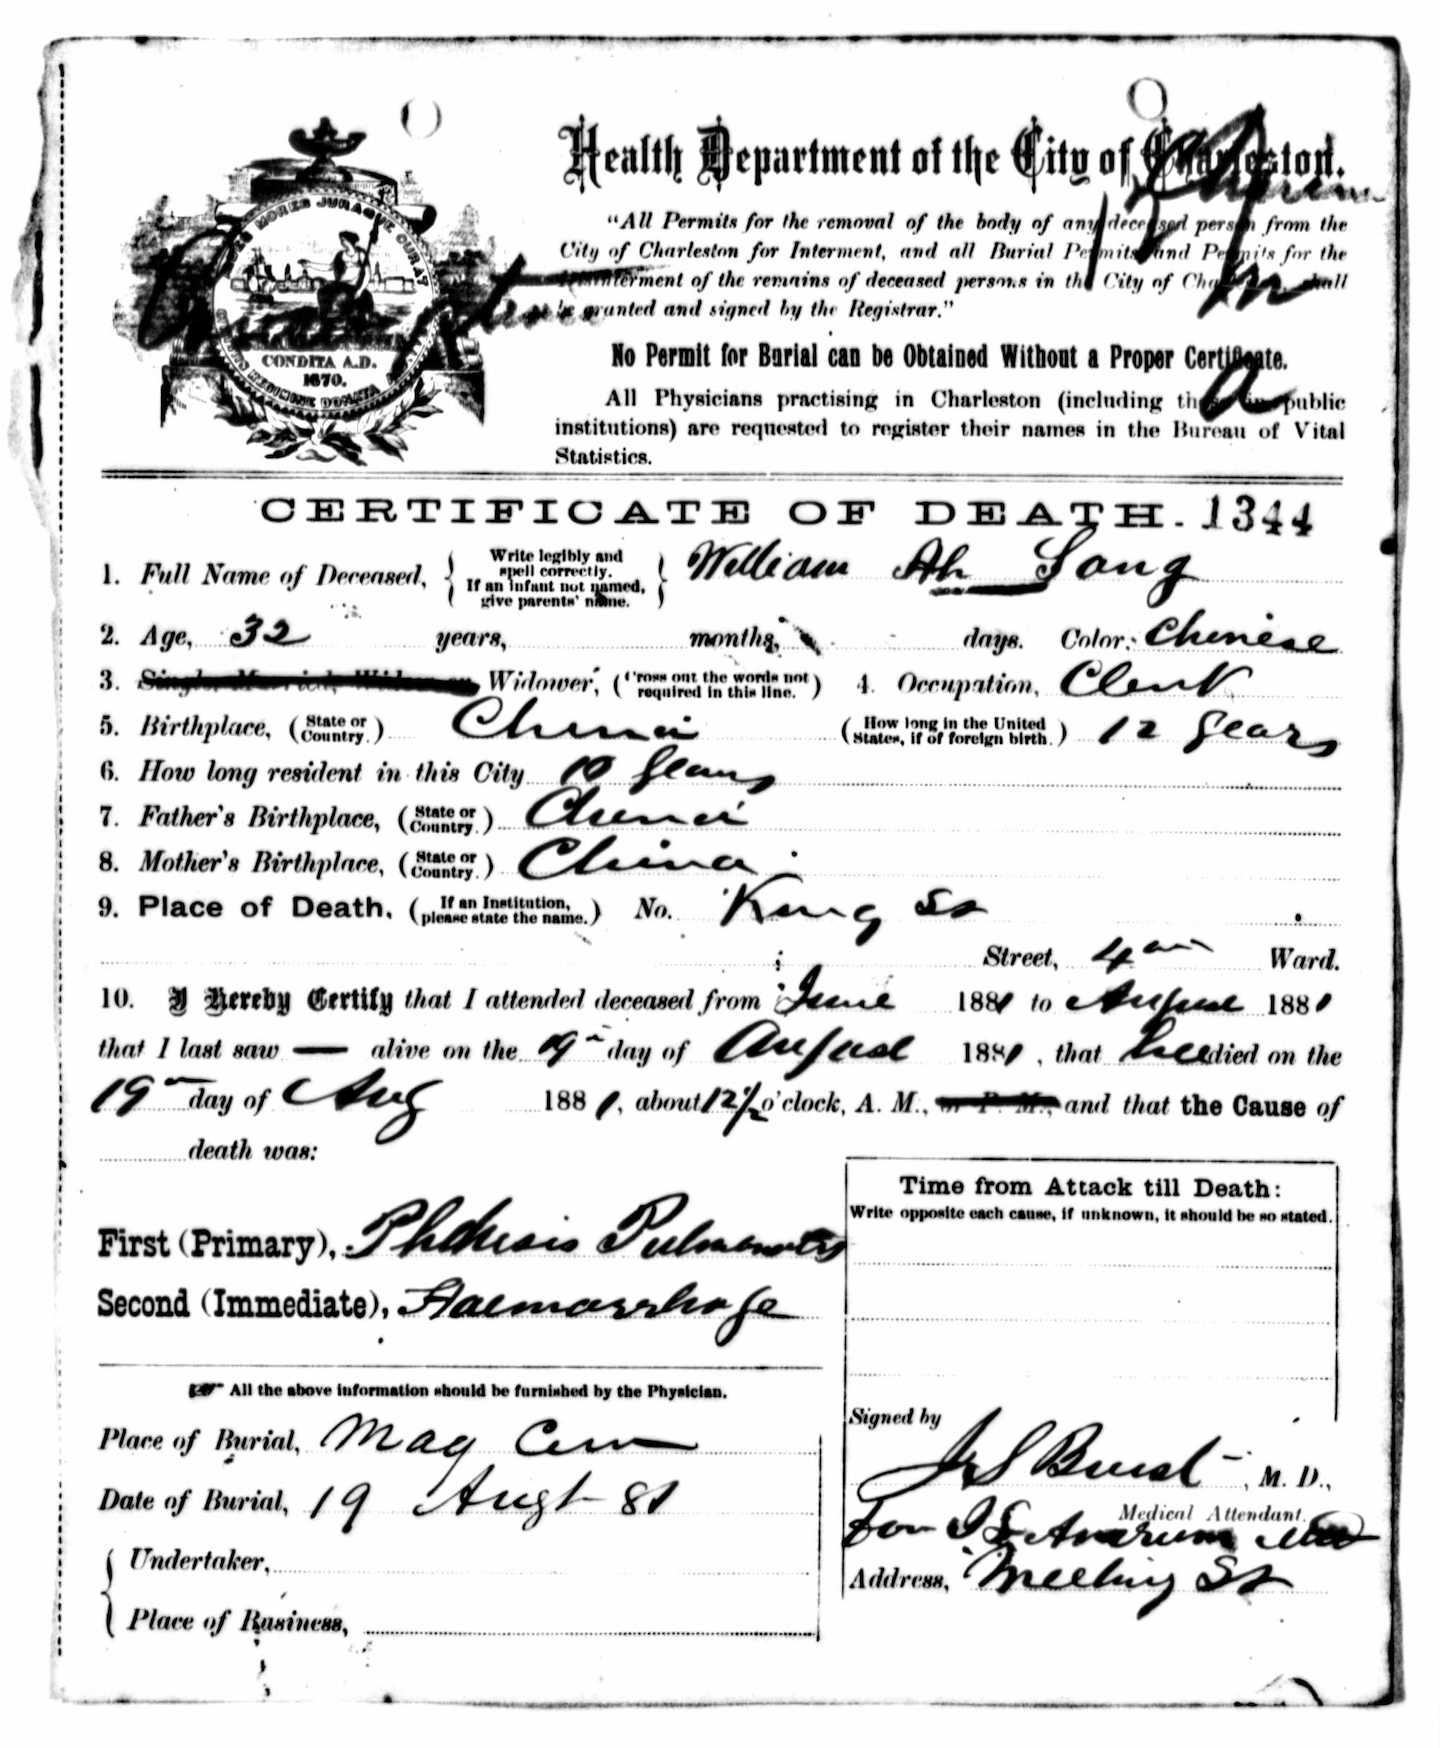 Health Department of the City of Charleston.
"All Permits for the removal of the body of any deceased person from the
City of Charleston for Interment, and all Burial Permits and Permits for the
Disinterment of the remains of deceased persons in the City of Charleston shall
be granted and signed by the Registrar."
No Permit for Burial can be Obtained Without a Proper Certificate.
All Physicians practising in Charleston (including those in public
institutions) are requested to register their names in the Bureau of Vital
Statistics.
CONDITA A.D.
1670.
CERTIFICATE OF DEATH. 1344
1. Full Name of Deceased, { Write legibly and spell correctly. If an infant not named, give parents' name. } William Ah Sang
2. Age, 32 years, months, days. Color: Chinese
3. Single, Married, Widow or Widower, (Cross out the words not required in this line.) 4. Occupation, Clerk
5. Birthplace, (State or Country.) China (How long in the United States, if of foreign birth.) 12 years
6. How long resident in this City 10 years
7. Father's Birthplace, (State or Country.) China
8. Mother's Birthplace, (State or Country.) China
9. Place of Death, (If an Institution, please state the name.) No. King St
Street, 4th Ward.
10. I Hereby Certify that I attended deceased from June 1881 to August 1881
that I last saw — alive on the 19th day of August 1881, that he died on the
19th day of Aug 1881, about 12½ o'clock, A. M., or P. M., and that the Cause of
death was:
Time from Attack till Death:
Write opposite each cause, if unknown, it should be so stated.
First (Primary), Phthisis Pulmonalis
Second (Immediate), Haemorrhage
All the above information should be furnished by the Physician.
Place of Burial, Mag Cem
Date of Burial, 19 Augt 81
Undertaker,
Place of Business,
Signed by
Buist, M. D.,
Medical Attendant.
For
Address, Meeting St